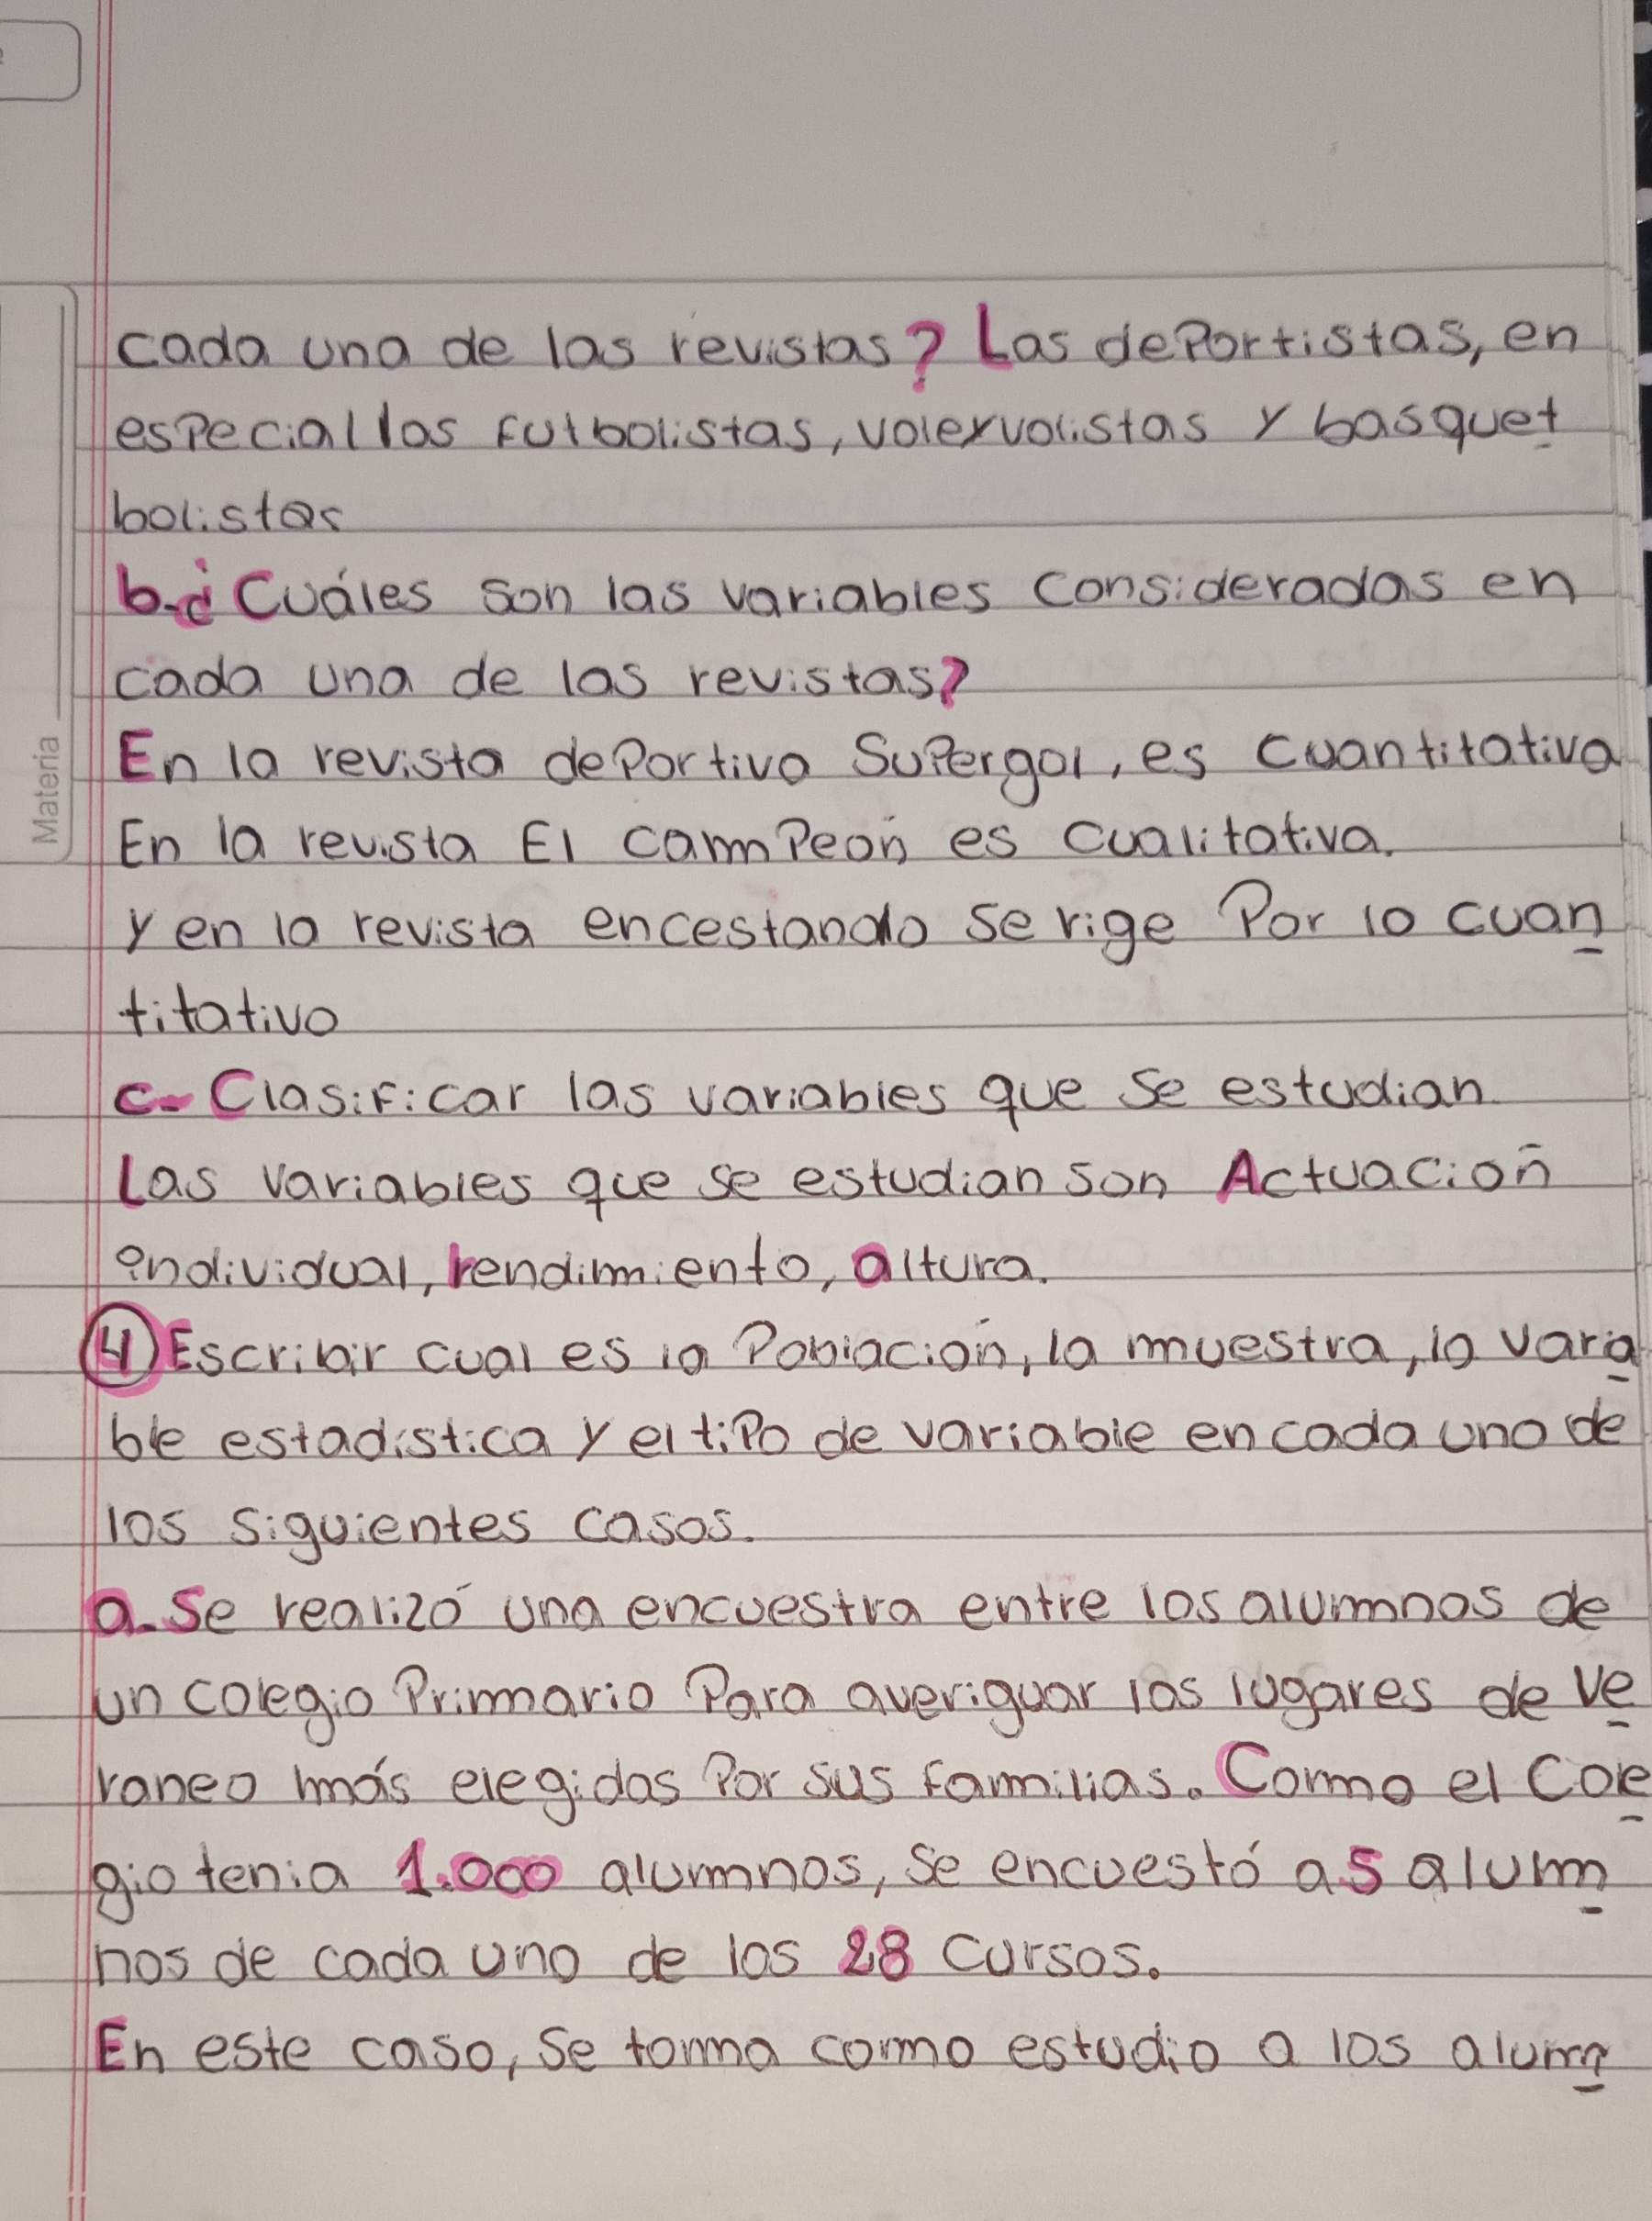 cada una de las revistas? Las deportistas, en
especial los futbolistas, voleyvolistas y basquet
bolistas
b-¿Cuáles son las variables consideradas en
cada una de las revistas?
En la revista deportiva Supergol, es cuantitativa
En la revista El campeón es cualitativa.
y en la revista encestando se rige por lo cuan
titativo
c- Clasificar las variables que se estudian.
Las variables que se estudian son Actuación
individual, rendimiento, altura.
4) Escribir cual es la Población, la muestra, la varia
ble estadistica y el tipo de variable en cada uno de
los siguientes casos.
a. Se realizó una encuestra entre los alumnos de
un colegio Primario Para averiguar los lugares de ve
raneo más elegidos Por sus familias. Como el Cole
gio tenia 1.000 alumnos, se encuestó a 5 alum
nos de cada uno de los 28 cursos.
En este caso, se toma como estudio a los alum
Materia